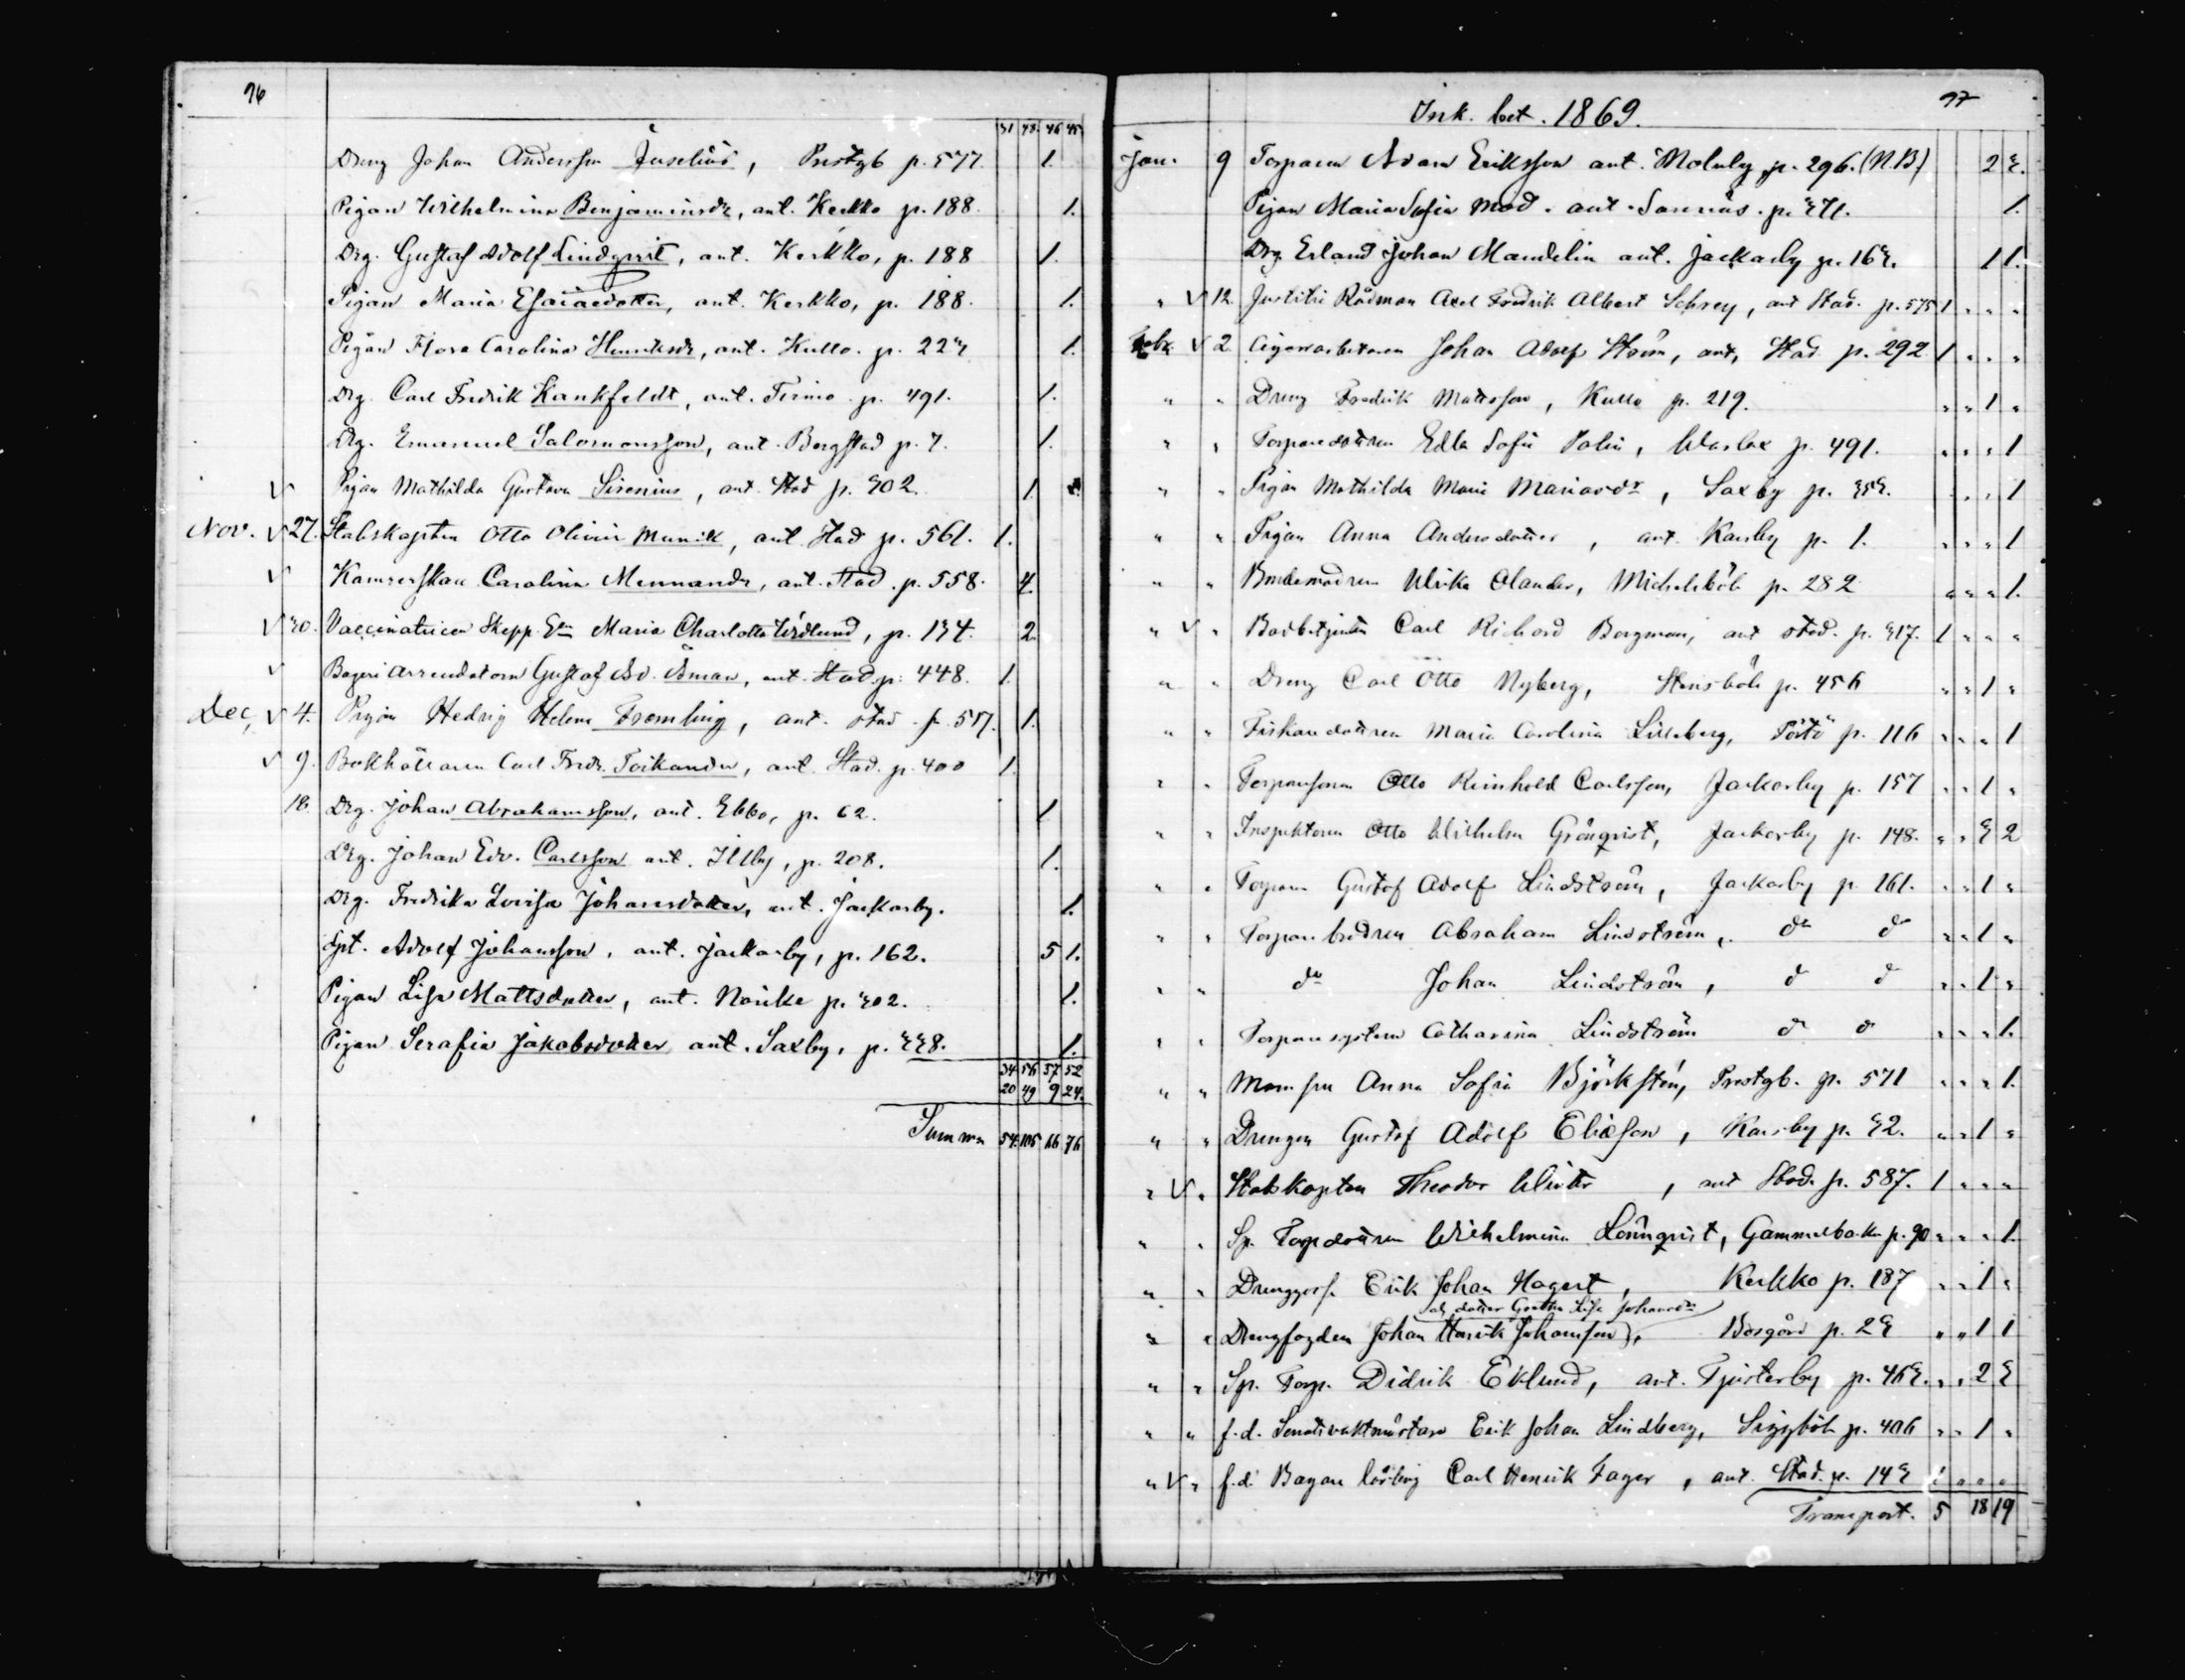 96
31 48. 46 45
Dreng Johan Andersson Juselius, Prestgb p. 577. 1.
Pigan Wilhelmina Benjaminsdr, ant. Kerkko p. 188. 1.
Drg. Gustaf Adolf Lindqvist, ant. Kerkko, p. 188 1.
Pigan Maria Esaiaedotter, ant. Kerkko, p. 188. 1.
Pigan Flora Carolina Henriksdr, ant. Kullo. p. 223 1.
Drg. Carl Fredrik Kankfeldt, ant. Tirmo p. 491. 1.
Drg. Emanuel Salomonsson, ant. Bergstad p. 7. 1.
√ Pigan Mathilda Gustava Sirenius, ant. Stad p. 302. 1.
Nov. √ 27. Stabskapten Otto Olivier Munck, ant. Stad p. 561. 1.
√ Kamrerskan Carolina Mennandr, ant. Stad. p. 558. 4.
√ 30. Vaccinatricen Skepp. Maria Charlotta Widlund, p. 134. 2.
√ Bageri arrendatorn Gustaf Ad. Åman, ant. Stad. p. 448. 1.
Dec, √ 4. Pigan Hedvig Helena Fremling, ant. stad. p. 517. 1.
√ 9. Bokhållaren Carl Fredr. Toikander, ant. Stad. p. 400 1.
18. Drg. Johan Abrahamsson, ant. Ebbo, p. 62. 1
Drg. Johan Edv. Carlsson ant. Illby, p. 208. 1.
Drg. Fredrika Lovisa Johansdotter, ant. Jackarby. 1.
Spt. Adolf Johansson, ant. Jackarby, p. 162. 5 1.
Pigan Lisa Mattsdotter, ant. Norike p. 302. 1.
Pigan Serafia Jakobsdotter ant. Saxby, p. 338. 1.
34 56 57 52
20 49 9 24.
Summa 54. 105 66 76
97
Ink. bet. 1869.
Jan. 9 Torparen Adam Eriksson ant. Molnby p. 296. (N.B.) 2 3.
Pigan Maria Sofia Mod. ant. Sannäs. p. 371. 1.
Drg Erland Johan Mandelin ant. Jackarby p. 163. 1 1.
" √ 12 Justitie Rådman Axel Fredrik Albert Schrey, ant Stad. p. 575 1 " " "
Febr √ 2 Cigarrarbetaren Johan Adolf Ström, ant, Stad p. 292 1 " " "
" " Dreng Fredrik Mattsson, Kullo p. 219. " " 1 "
" " Torparedottren Edla Sofia Polin, Warlax p. 491. " " " 1
" " Pigan Mathilda Maria Mariasdr, Saxby p. 353. " " " 1
" " Pigan Anna Andersdotter, ant. Karsby p. 1. " " " 1
" " Bondemodren Ulrika Olander, Michelsböle p. 282 " " " 1.
" √ " Carl Richard Bergman, ant stad. p. 317. 1 " " "
" " Dreng Carl Otto Nyberg, Stensböle p. 456 " " 1 "
" " Fiskaredottren Maria Carolina Lilleberg, Pörtö p. 116 " " " 1
" " Torparesonen Otto Reinhold Carlsson, Jackarby p. 157 " " 1 "
" " Inspektoren Otto Wilhelm Grönqvist, Jackarby p. 148. " " 3 2
" " Torparen Gustaf Adolf Lindström, Jackarby p. 161. " " 1 "
" " Torparebrodren Abraham Lindström, do do " " 1 "
" " do Johan Lindström, d d " " 1 "
" " Torparesystern Catharina Lindström d d " " " 1.
" " Mamsell Anna Sofia Björkstén, Prestgb. p. 571 " " " 1.
" " Drengen Gustaf Adolf Eliasson, Karsby p. 32. " " 1 "
" √ " Stabskapten Theodor Winter, ant Stad. p. 587. 1 " " "
" " Sp. Torpdottren Wilhelmina Lönnqvist, Gammelbacka p. 90 " " " 1.
" " Drenggosse Erik Johan Hagert, Kerkko p. 187 " " 1 "
och dotter Greta Lisa Johansdr
" " Drengfogden Johan Henrik Johansson, Bosgård p. 23 " " 1 1
" " Sp. Torp. Didrik Eklund, ant. Tjusterby p. 463. " " 2 3
" " f.d. Senatsvaktmästare Erik Johan Lindberg, Siggböle p. 406 " " 1 "
" √ " f.d. Bagare lärling Carl Henrik Fager, ant. Stad. p. 143 1 " " "
Transport. 5 18 19